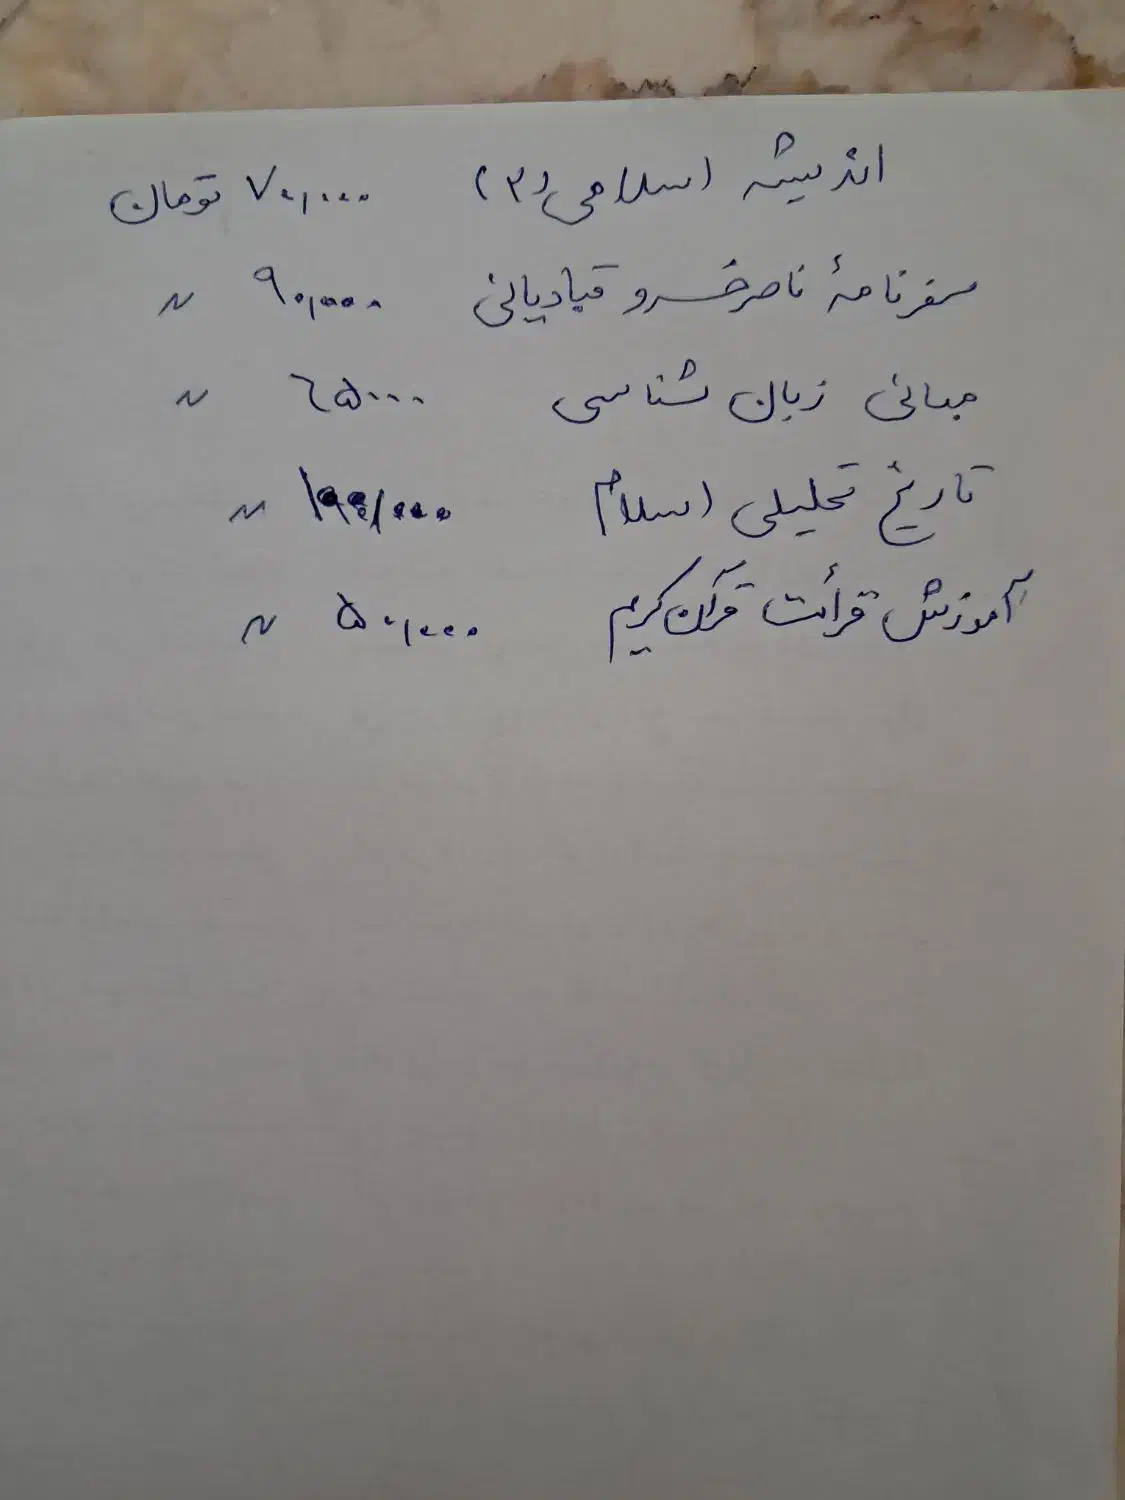 اندیشه اسلامی (۲) ۷۰,۰۰۰ تومان
سفرنامهٔ ناصرخسرو قبادیانی ۹۰,۰۰۰ 〃
مبانی زبان شناسی ۶۵۰۰۰ 〃
تاریخ تحلیلی اسلام 〃
آموزش قرأئت قرآن کریم ۵۰,۰۰۰ 〃